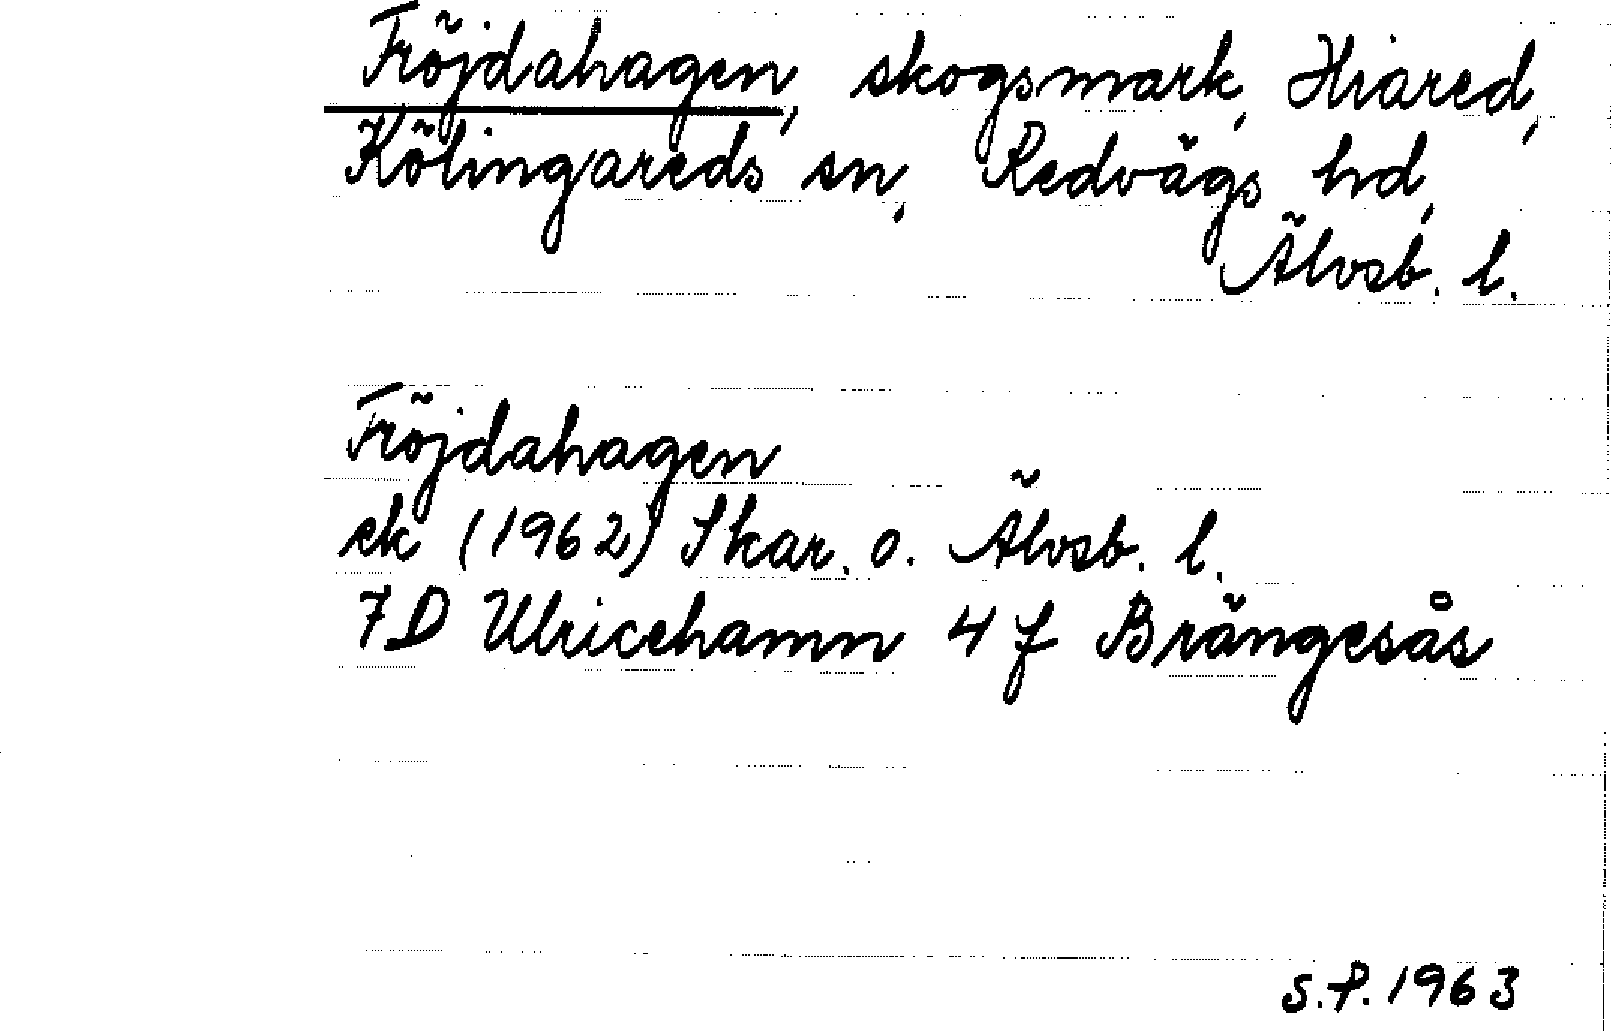 Fröjdahagen, skogsmark, Hiared,
Kölingareds sn, Redvägs hd,
Älvsb. l.
Fröjdahagen
ek (1962) Skar. o. Älvsb. l.
7D Ulricehamn 4 f Brängesås
S.P. 1963